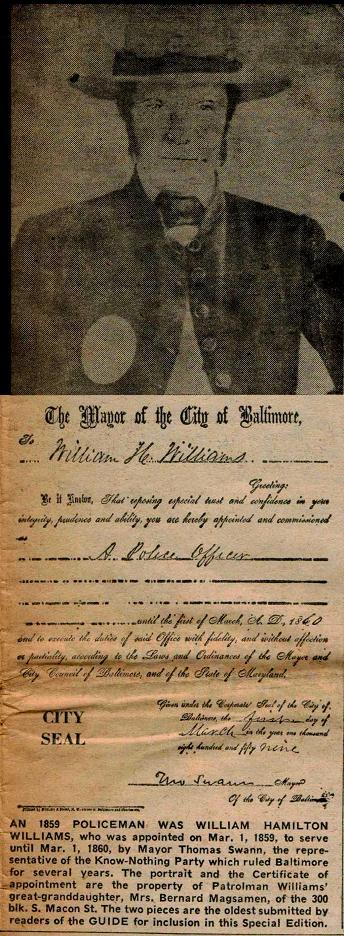 The Mayor of the City of Baltimore,
To William H. Williams
Greeting:
Be it Known, That reposing especial trust and confidence in your
integrity, prudence and ability, you are hereby appointed and commissioned
as
A Police Officer
until the first of March, A. D., 1860
and to execute the duties of said Office with fidelity, and without affection
or partiality, according to the Laws and Ordinances of the Mayor and
City Council of Baltimore, and of the State of Maryland.
CITY
SEAL
Given under the Corporate Seal of the City of
Baltimore, the first day of
March in the year one thousand
eight hundred and fifty nine
Tho Swann Mayor
Of the City of Baltimore
AN 1859 POLICEMAN WAS WILLIAM HAMILTON
WILLIAMS, who was appointed on Mar. 1, 1859, to serve
until Mar. 1, 1860, by Mayor Thomas Swann, the repre-
sentative of the Know-Nothing Party which ruled Baltimore
for several years. The portrait and the Certificate of
appointment are the property of Patrolman Williams'
great-granddaughter, Mrs. Bernard Magsamen, of the 300
blk. S. Macon St. The two pieces are the oldest submitted by
readers of the GUIDE for inclusion in this Special Edition.